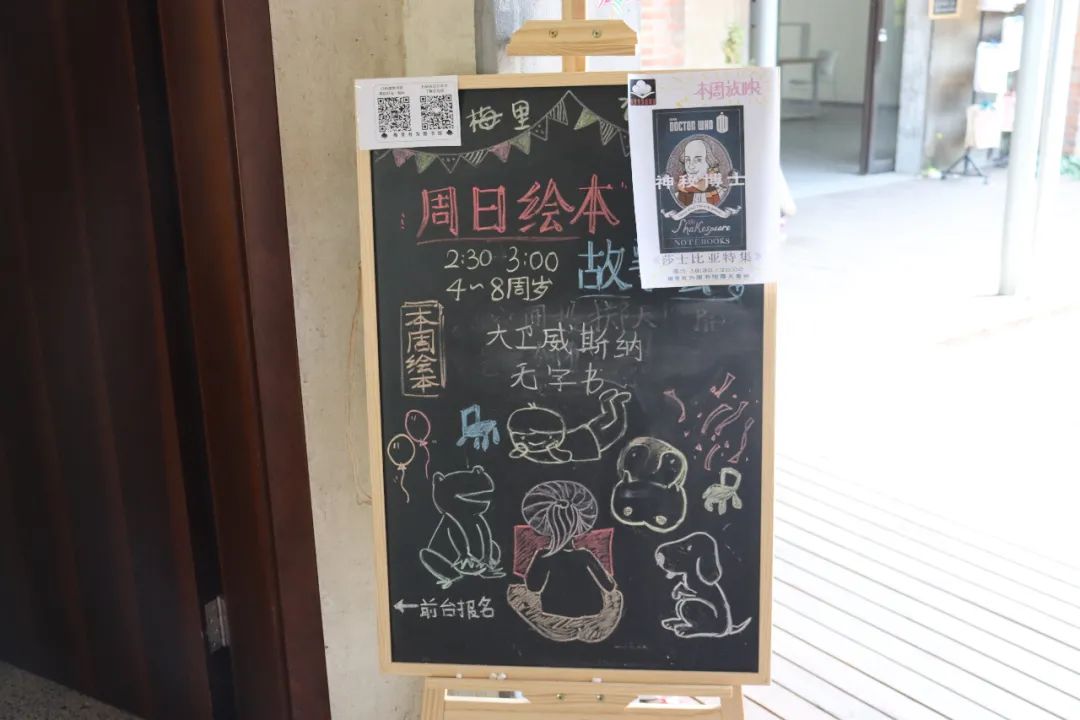 梅里
周日绘本
2:30 3:00
故
4~8周岁
本周绘本
大卫威斯纳
无字书
←前台报名
本周放映
DOCTOR WHO
神秘博士
The
Shakespeare
NOTEBOOKS
莎士比亚特集